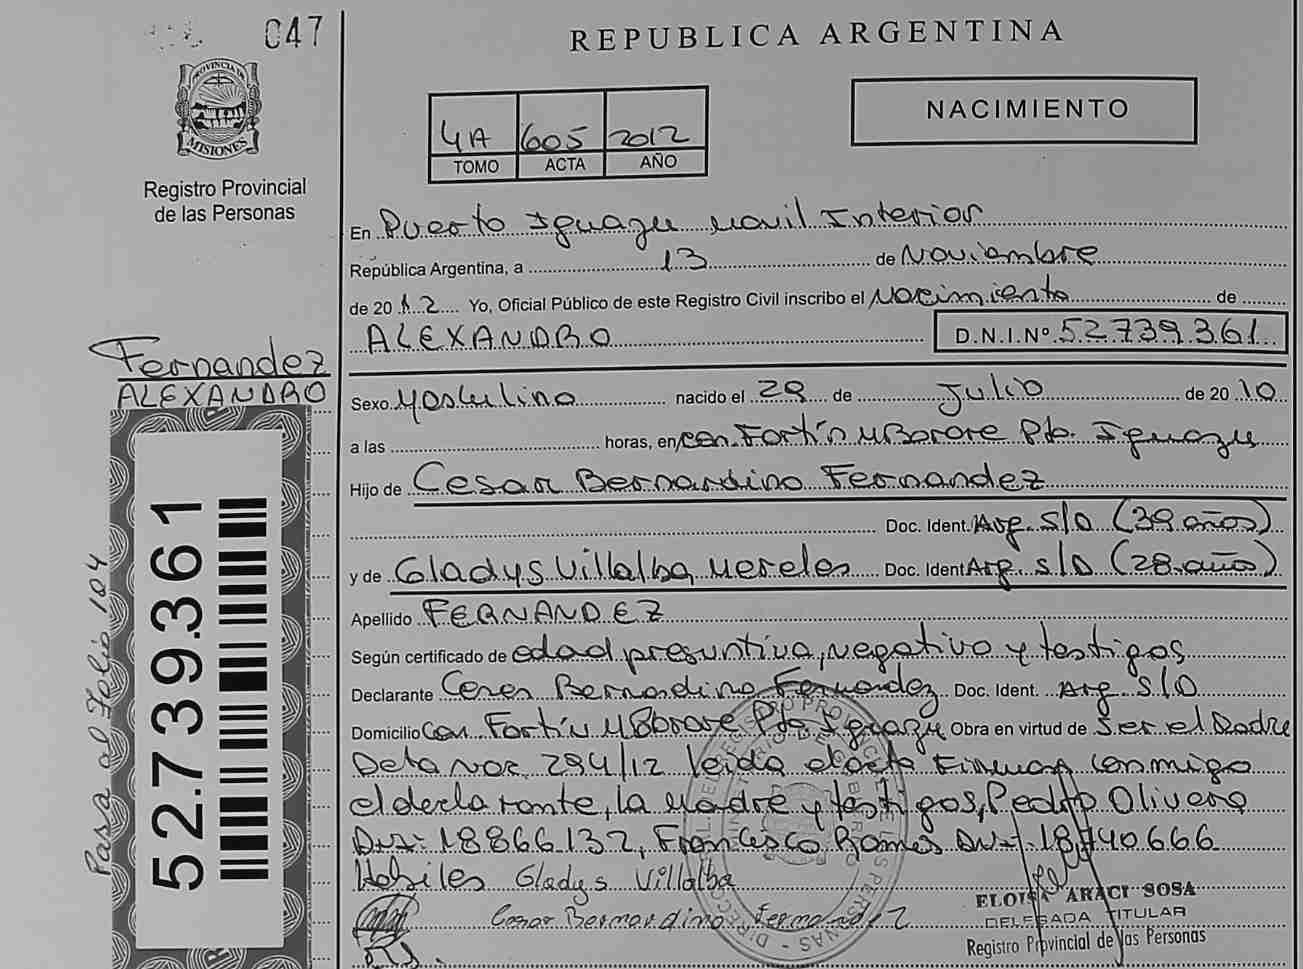 047
REPUBLICA ARGENTINA
PROVINCIA DE
MISIONES
Registro Provincial
de las Personas
4A 605 2012
TOMO ACTA AÑO
NACIMIENTO
En Puerto Iguazu Movil Interior
República Argentina, a 13 de Noviembre
de 2012 Yo, Oficial Público de este Registro Civil inscribo el Nacimiento de
ALEXANDRO D.N.I.Nº 52739361
Fernandez
ALEXANDRO
Sexo Masculino nacido el 29 de Julio de 2010
a las horas, en Con. Fortín MBorore Pto. Iguazu
Hijo de Cesar Bernardino Fernandez
Doc. Ident. Arg. S/D (39 años)
y de Gladys Villalba Mereles Doc. Ident Arg. S/D (28 años)
Apellido FERNANDEZ
Según certificado de edad presuntiva, negativo y testigos
Declarante Cesar Bernardino Fernandez Doc. Ident. Arg. S/D
Domicilio Con Fortín MBorore Pto Iguazu Obra en virtud de Ser el Padre
294/12 leida el acta Firman conmigo
el declarante, la Madre y testigos, Pedro Olivera
DNI: 18866132, Francisco Ramos DNI: 18740666
Habiles Gladys Villalba
Cesar Bernardino Fernandez
ELOISA ARACI SOSA
DELEGADA TITULAR
Registro Provincial de las Personas
52.739.361
Pasa al Folio 104